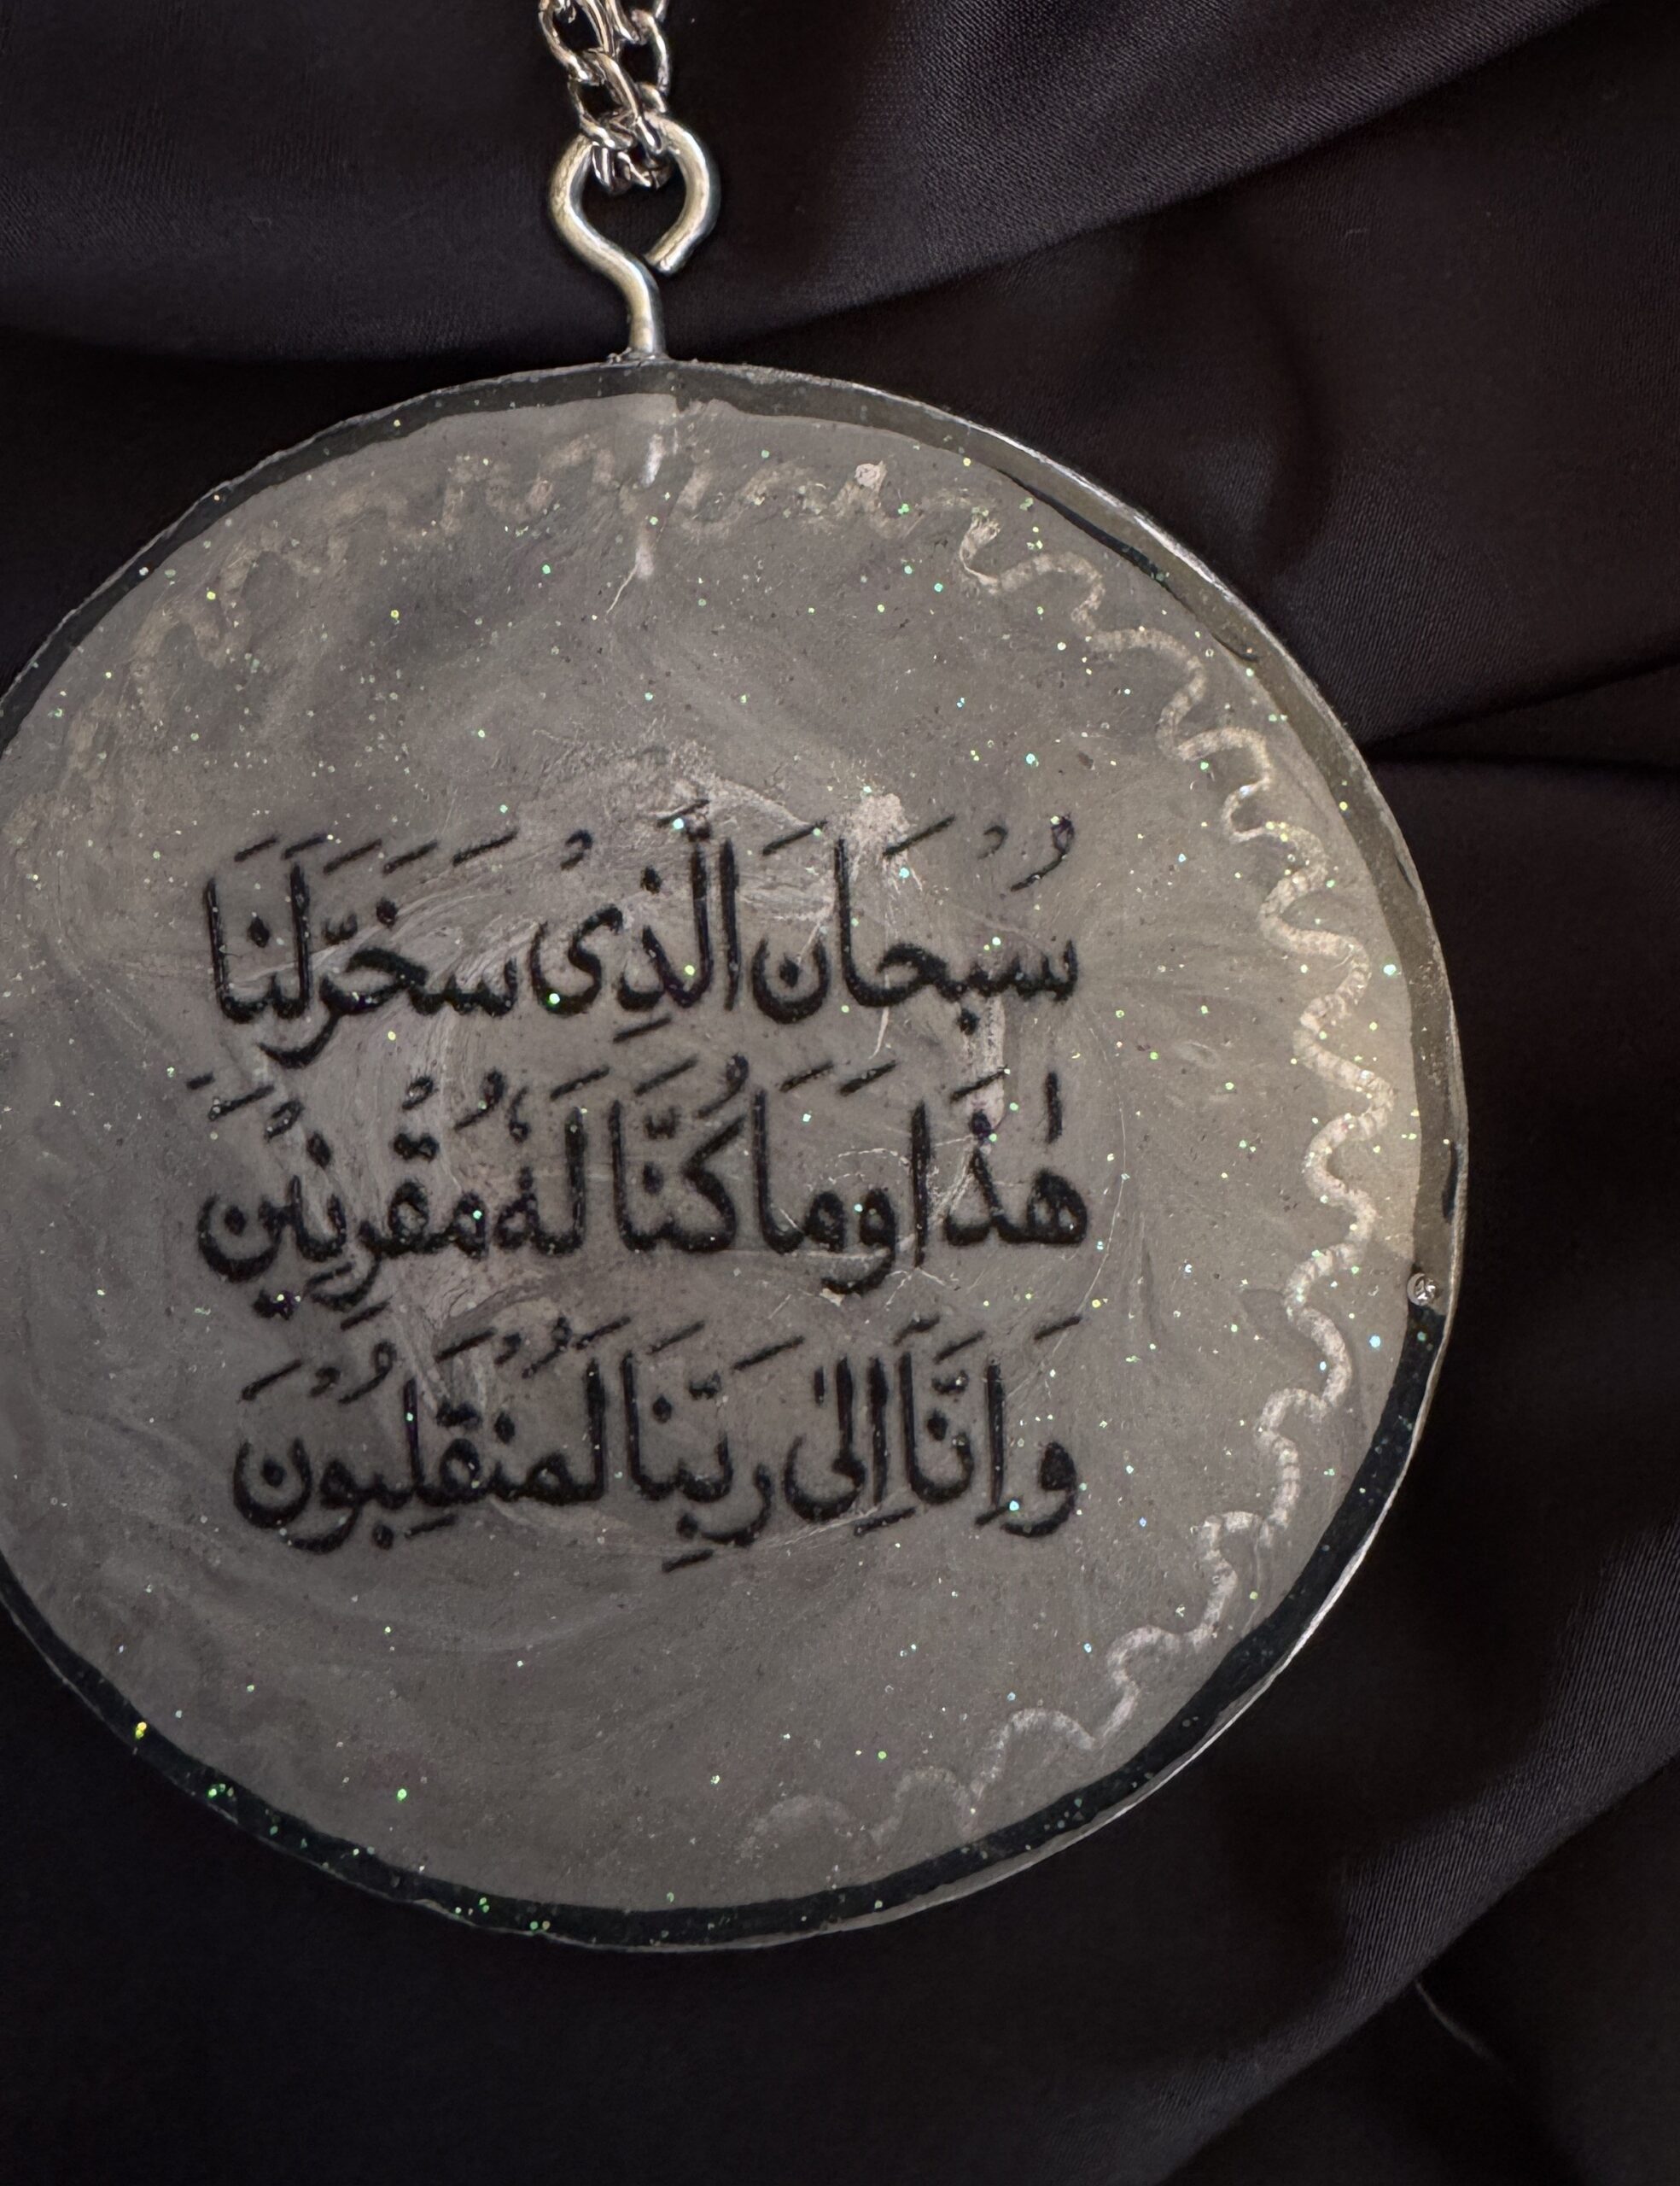 سُبْحَانَ الَّذِیْ سَخَّرَلَنَا
هٰذَا وَمَا كُنَّا لَهٗ مُقْرِنِیْنَ
وَاِنَّآ اِلٰی رَبِّنَا لَمُنْقَلِبُوْنَ